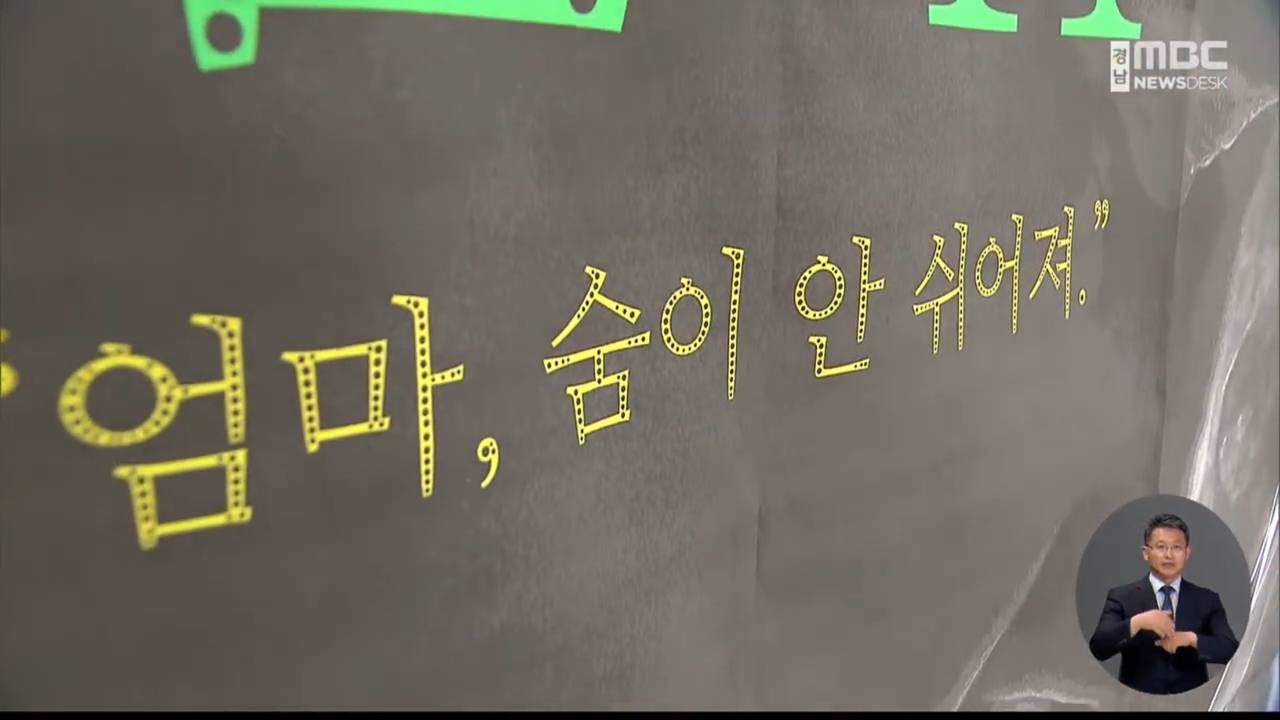 경남 MBC
NEWSDESK
“엄마, 숨이 안 쉬어져.”